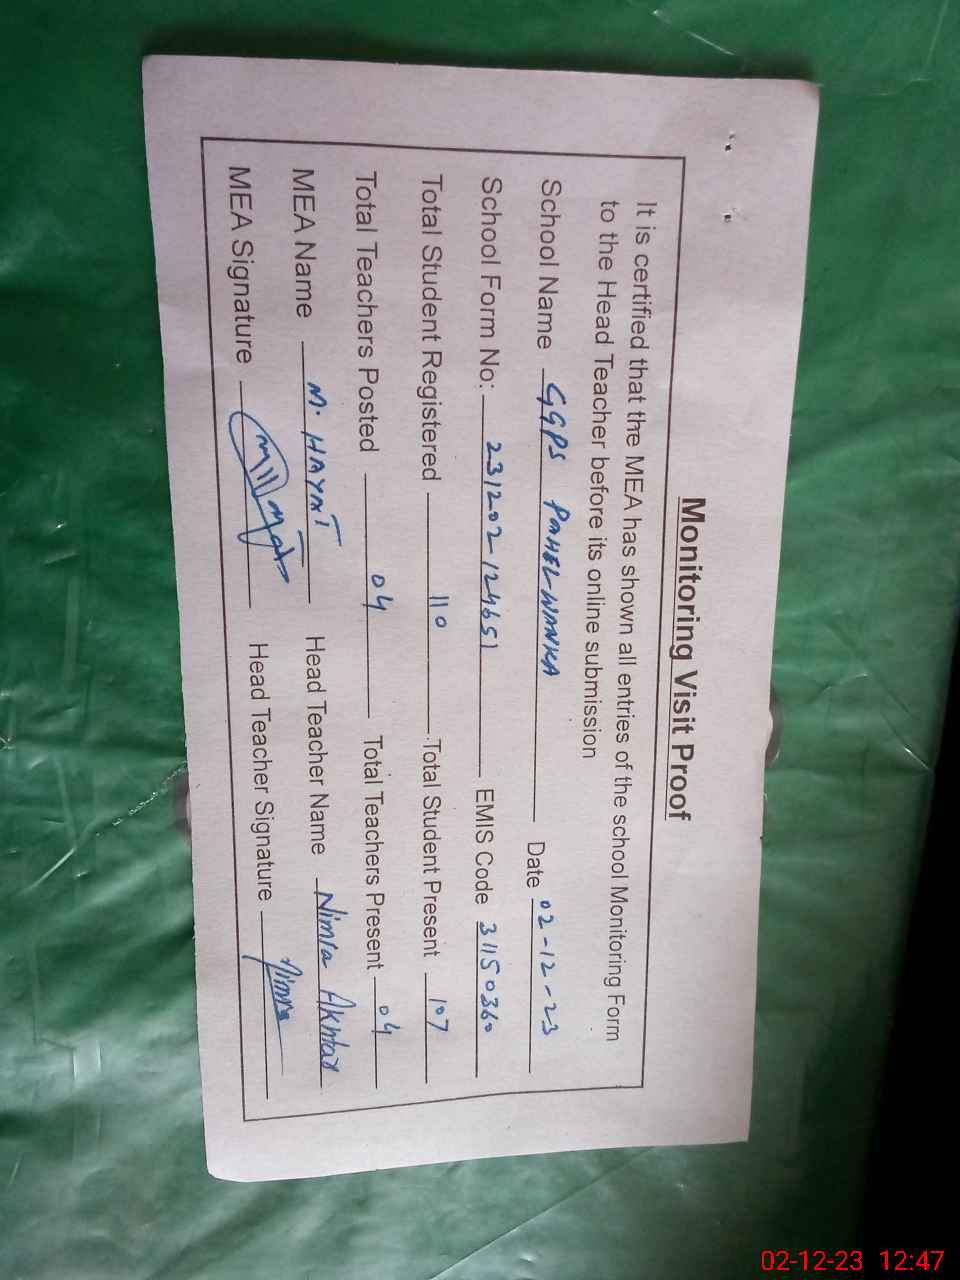 Monitoring Visit Proof
It is certified that the MEA has shown all entries of the school Monitoring Form
to the Head Teacher before its online submission
School Name GGPS PAHELWANKA Date 02-12-23
School Form No: 231202-124651 EMIS Code 31150360
Total Student Registered 110 Total Student Present 107
Total Teachers Posted 04 Total Teachers Present 04
MEA Name M. HAYAT Head Teacher Name Nimra Akhtar
MEA Signature Head Teacher Signature Nimra
02-12-23 12:47